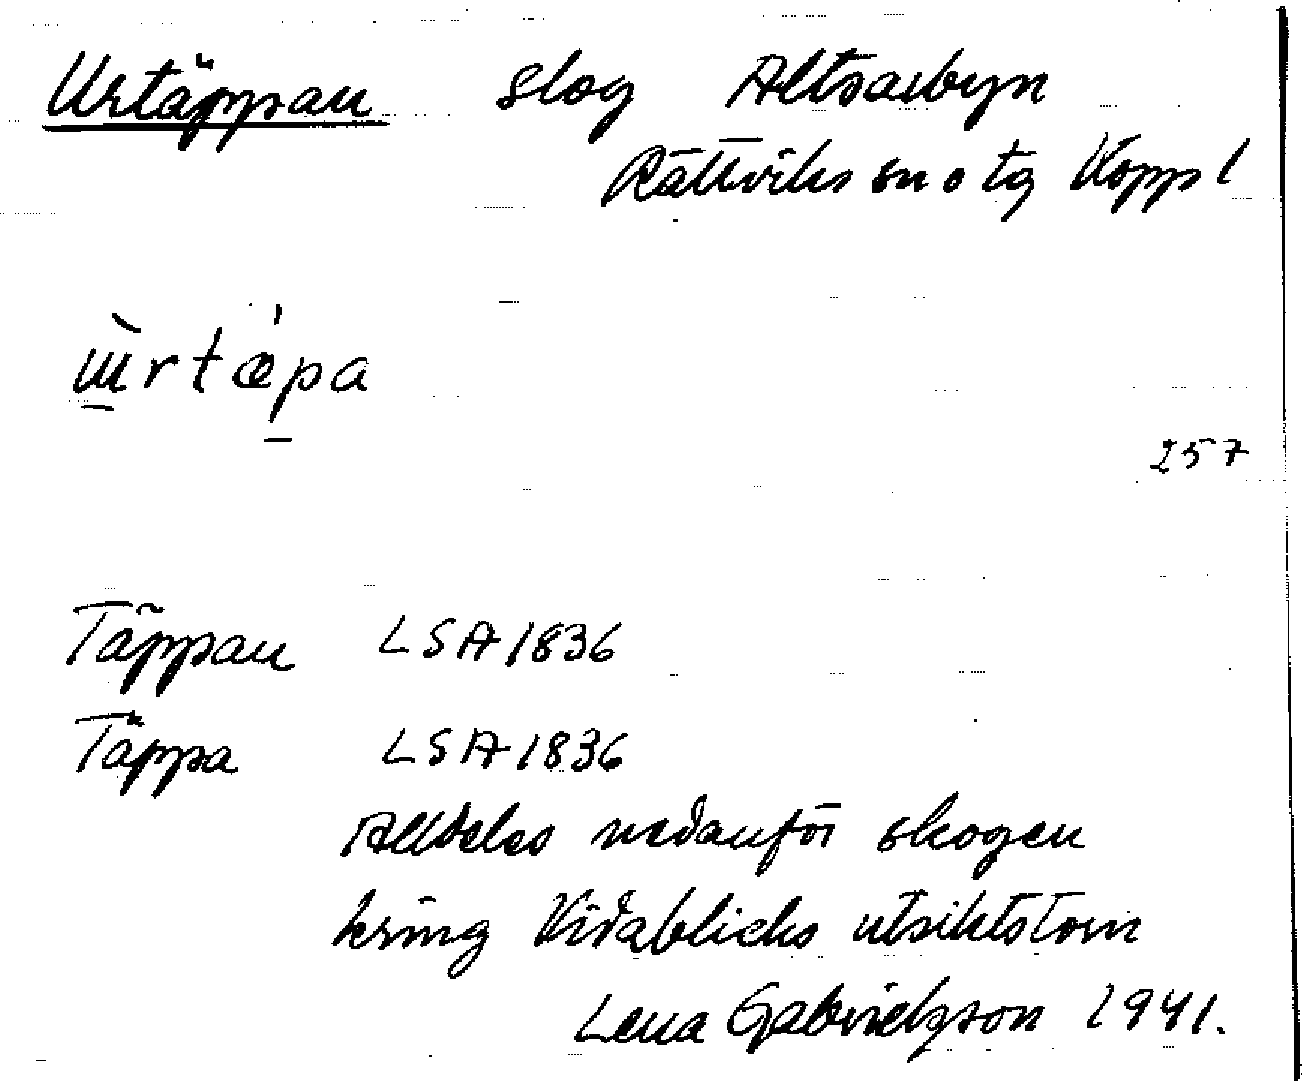 Urtäppan slog Altsarbyn
Rättviks sn o tg Kopp l
ɯ̀rtæ̍pa
257
Täppan LSA 1836
Täppa LSA 1836
Alldeles nedanför skogen
kring Vidablicks utsiktstorn
Lena Gabrielsson 1941.